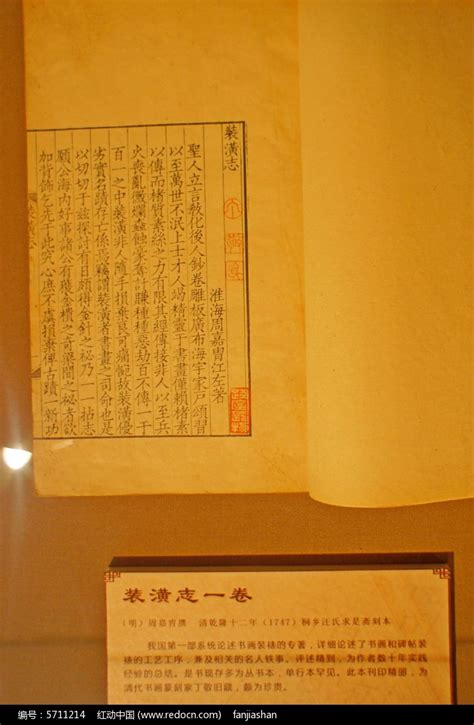 裝潢志
淮海周嘉胄江左著
聖人立言教化後人鈔卷雕板廣布海宇家戶頌習
以至萬世不泯上士才人竭精靈于書畫僅賴楮素
以傳而楮質素絲之力有限其經傳接非人以至兵
火喪亂黴爛蟲蝕豪奪計賺種種惡劫百不傳一于
百一之中裝潢非人隨手損棄良可痛惋故裝潢優
劣實名蹟存亡係焉竊謂裝潢者書畫之司命也是
以切切于茲探討有日頗得金針之秘乃一一拈志
願公海內好事諸公有獲金櫝之奇梁間之秘者欲
加背飾乞先于此究心庶不虞損棄俾古蹟一新功
裝潢志
装潢志一卷
（明）周嘉胄撰 清乾隆十二年（1747）桐乡汪氏求是斋刻本
我国第一部系统论述书画装裱的专著，详细论述了书画和碑帖装
裱的工艺工序，兼及相关的名人轶事。评述精到，为作者数十年实践
经验的总结。是书现存多为丛书本，单行本罕见。此本刊印精丽，为
清代书画篆刻家丁敬旧藏，颇为珍贵。
编号：5711214 红动中国 (www.redocn.com) fanjiashan